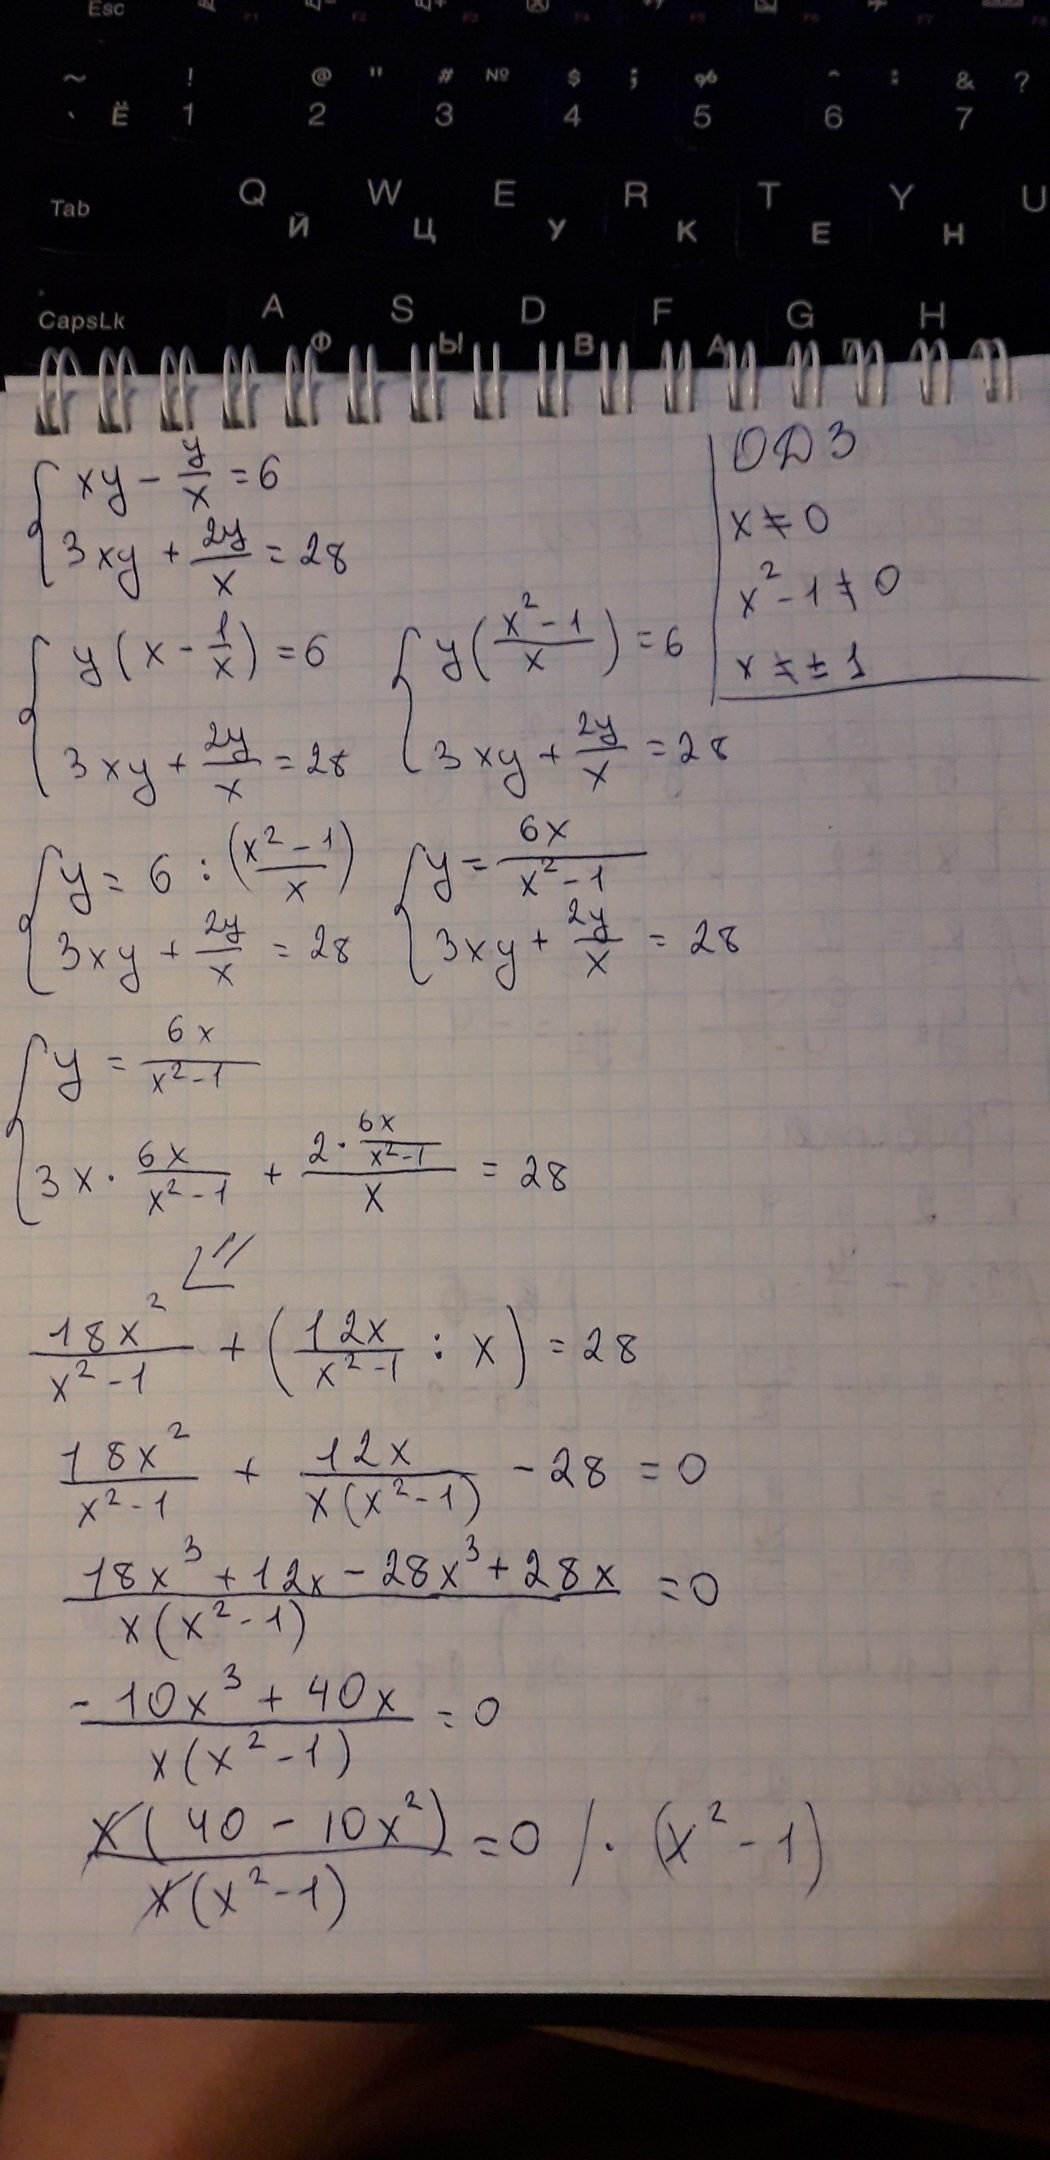 Esc
~ ! @ " # № $ ; % ^ : & ?
` Ё 1 2 3 4 5 6 7
Tab Q Й W Ц E У R К T Е Y Н U
CapsLk A Ф S Ы D В F А G П H
xy - y/x = 6
3xy + 2y/x = 28
ОДЗ
x ≠ 0
x² - 1 ≠ 0
x ≠ ± 1
y(x - 1/x) = 6
3xy + 2y/x = 28
y((x² - 1)/x) = 6
3xy + 2y/x = 28
y = 6 : ((x² - 1)/x)
3xy + 2y/x = 28
y = 6x/(x² - 1)
3xy + 2y/x = 28
y = 6x/(x² - 1)
3x · 6x/(x² - 1) + (2 · 6x/(x² - 1))/x = 28
18x²/(x² - 1) + (12x/(x² - 1) : x) = 28
18x²/(x² - 1) + 12x/(x(x² - 1)) - 28 = 0
(18x³ + 12x - 28x³ + 28x)/(x(x² - 1)) = 0
(-10x³ + 40x)/(x(x² - 1)) = 0
x(40 - 10x²)/(x(x² - 1)) = 0 / · (x² - 1)